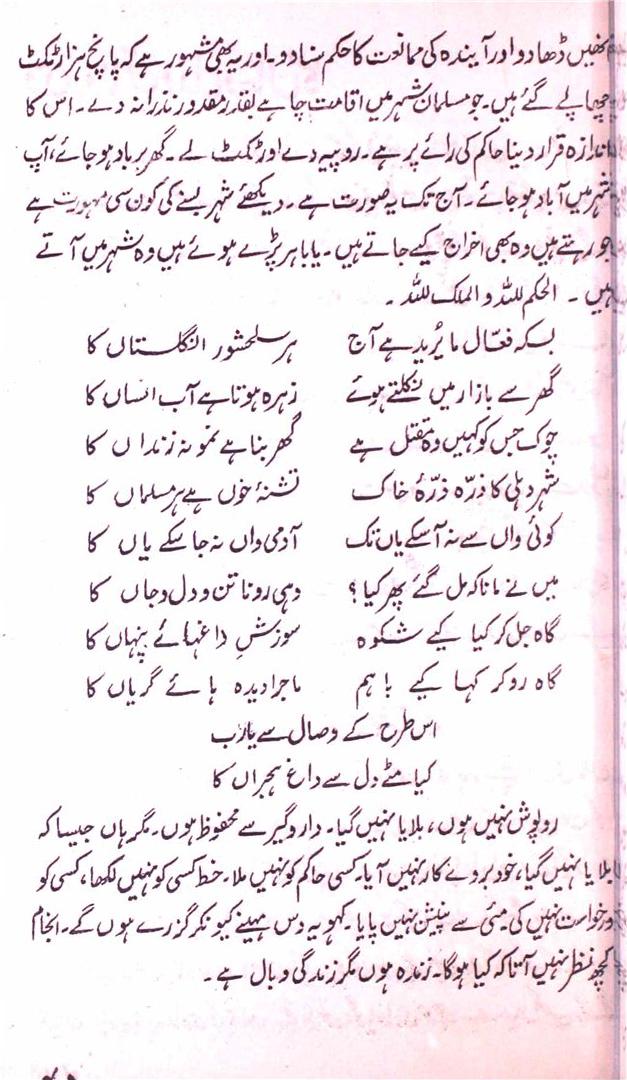 انھیں ڈھا دو اور آیندہ کی ممانعت کا حکم سنا دو۔ اور یہ بھی مشہور ہے کہ پانچ ہزار ٹکٹ
چھاپے گئے ہیں۔ جو مسلمان شہر میں اقامت چاہے بقدر مقدور نذرانہ دے۔ اس کا
اندازہ قرار دینا حاکم کی رائے پر ہے۔ روپیہ دے اور ٹکٹ لے۔ گھر برباد ہو جائے، آپ
شہر میں آباد ہو جائے۔ آج تک یہ صورت ہے۔ دیکھئے شہر بسنے کی کون سی مہورت ہے
جو رہتے ہیں وہ بھی اخراج کیے جاتے ہیں۔ یا باہر پڑے ہوئے ہیں وہ شہر میں آتے
ہیں۔ الحکم للّٰہ و الملک للّٰہ۔
بسکہ فعّال ما یُرید ہے آج ہر سلحشور انگلستاں کا
گھر سے بازار میں نکلتے ہوئے زہرہ ہوتا ہے آب انساں کا
چوک جس کو کہیں وہ مقتل ہے گھر بنا ہے نمونہ زنداں کا
شہر دہلی کا ذرّہ ذرّۂ خاک تشنۂ خوں ہے ہر مسلماں کا
کوئی واں سے نہ آسکے یاں تک آدمی واں نہ جا سکے یاں کا
میں نے مانا کہ مل گئے پھر کیا؟ وہی رونا تن و دل و جاں کا
گاہ جل کر کیا کیے شکوہ سوزشِ داغہائے پنہاں کا
گاہ رو کر کہا کیے باہم ماجرا دیدہ ہائے گریاں کا
اس طرح کے وصال سے یارب
کیا مٹے دل سے داغ ہجراں کا
روپوش نہیں ہوں، بلایا نہیں گیا۔ دار و گیر سے محفوظ ہوں۔ مگر ہاں جیسا کہ
بلایا نہیں گیا، خود بروئے کار نہیں آیا۔ کسی حاکم کو نہیں ملا۔ خط کسی کو نہیں لکھا، کسی کو
درخواست نہیں کی مئی سے پنشن نہیں پایا۔ کہو یہ دس مہینے کیونکر گزرے ہوں گے۔ انجام
کچھ نظر نہیں آتا کہ کیا ہوگا۔ زندہ ہوں مگر زندگی وبال ہے۔